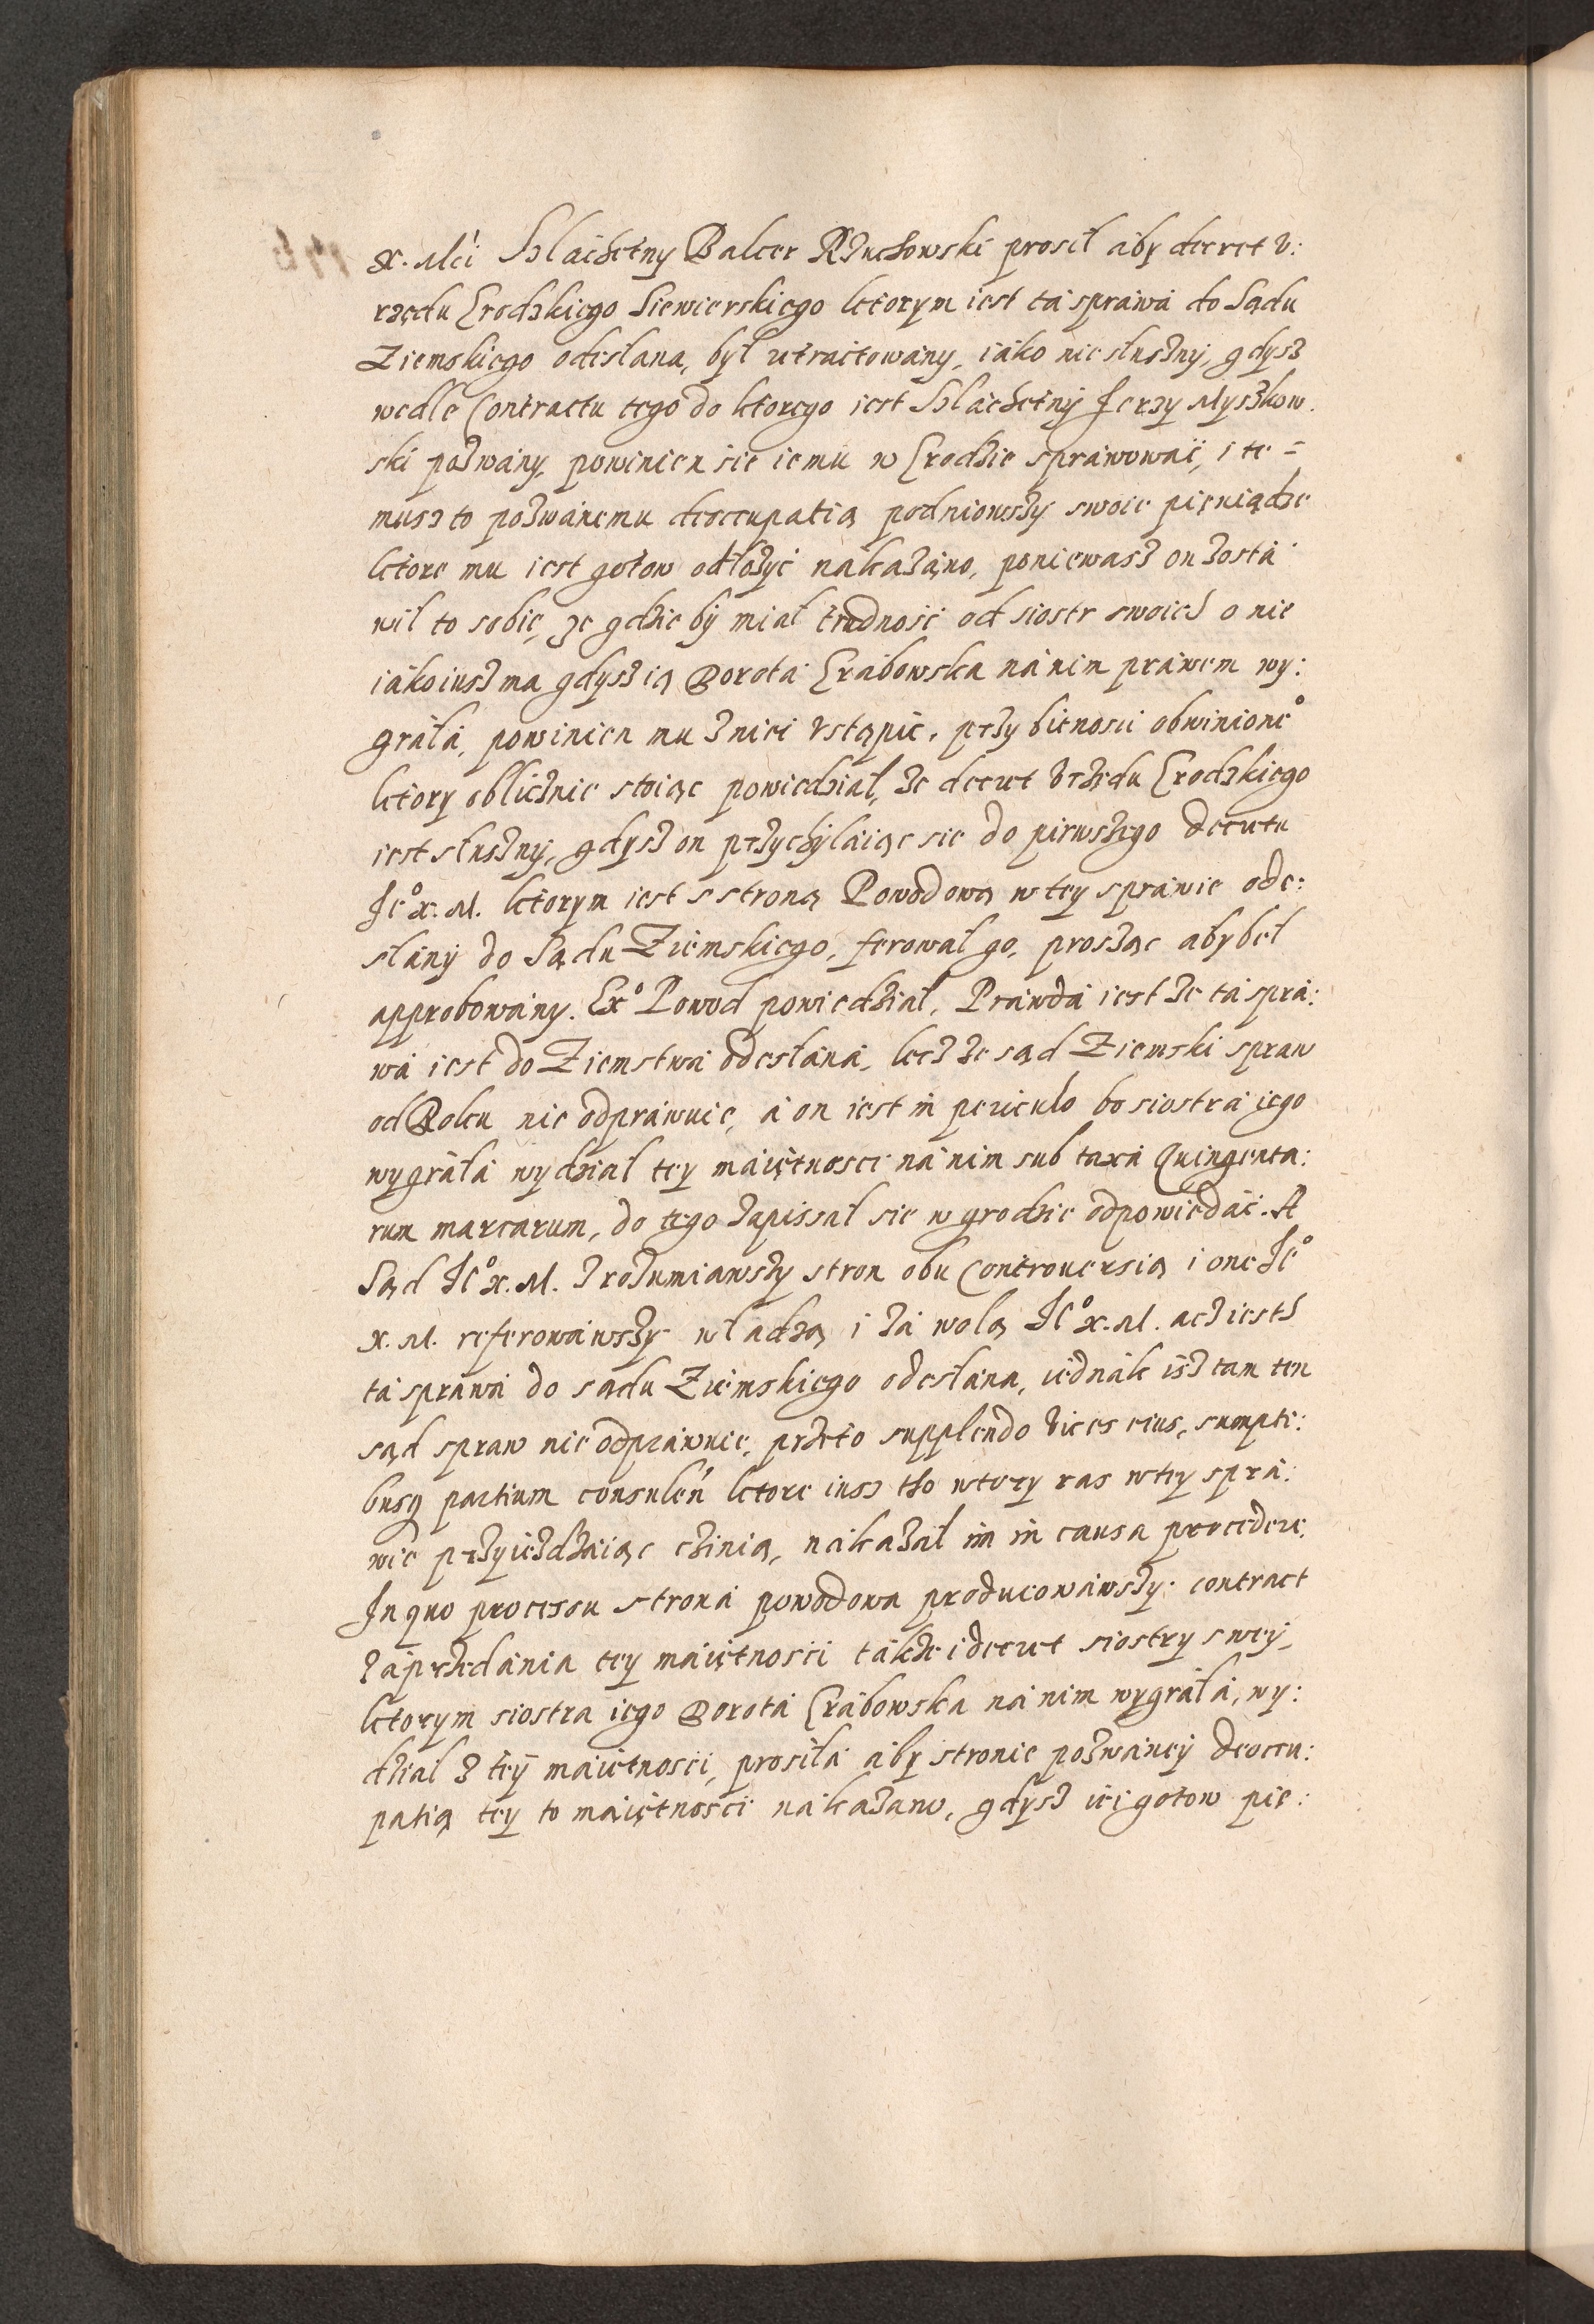 X. Mći Szláchetny Balcer Rzuchowski prosił áby decret v:
rzędu Grodzkiego Siewierskiego ktorym iest tá spráwá do Sądu
Ziemskiego odesłana, był retractowány, iáko niesłuszny, gdysz
wedle Contractu tego do ktorego iest Szláchetny Jerzy Myszkow.
ski pozwány, powinien sie iemu w Grodzie spráwowáć, i te =
musz to pozwánemu deoccupatią podniowszy swoie pięniądze
ktore mu iest gotow odłożyć nákazáno, poniewasz on zostá
wił to sobie, ze gdzie by miał trudność od siostr swoich o nie
iáko iusz ma gdysz ią Dorotá Grábowska ná nim práwem wy:
gráłá, powinien mu z niei vstąpić. przy bitnosci obwinione°
ktory obliczнie stoiąc powiedział, że decret vrzędu Grodzkiego
iest słuszny, gdysz on przychyláiąc sie do pierwszego decretu
Je° X. M. ktorym iest s stroną Powodową w tey spráwie ode:
słány do Sądu Ziemskiego, ferował go, prosząc aby beł
approbowány. Ex° Powod powiedział, Prawdá iest że tá sprá:
wá iest do Ziemstwá odesłáná, lecz że sąd Ziemski spraw
od Roku nie odpráwuie, á on iest in periculo bo siostrá iego
wygráłá wydział tey máiętnosci ná nim sub taxá Quingenta:
rum marcarum, do tego zapissał sie w grodzie odpowiedáć. A
Sąd Je° X. M. zrozumiawszy stron obu Controuersią i one Je°
X. M. referowáwszy władzą i zá wolą Je° X. M. acz iesth
tá spráwá do sądu Ziemskiego odesłana, iednák isz tam ten
sąd spraw nie odpráwuie, przeto supplendo vices eius, sumpti:
busq partium consuleń ktore iusz tho wtory ras w tey sprá:
wie przyieżdzáiąc czinią, nákazał im in causa procedere.
In quo processu stroná powodowa producowáwszy contract
záprzedánia tey máiętnosci tákże i decret siostry swey,
ktorym siostra iego Dorotá Grábowska ná nim wygráłá, wy:
dział z tey máiętnosci, prosiłá áby stronie pozwáney deoccu:
patią tey to máiętnosci nákazano, gdysz iei gotow pie: